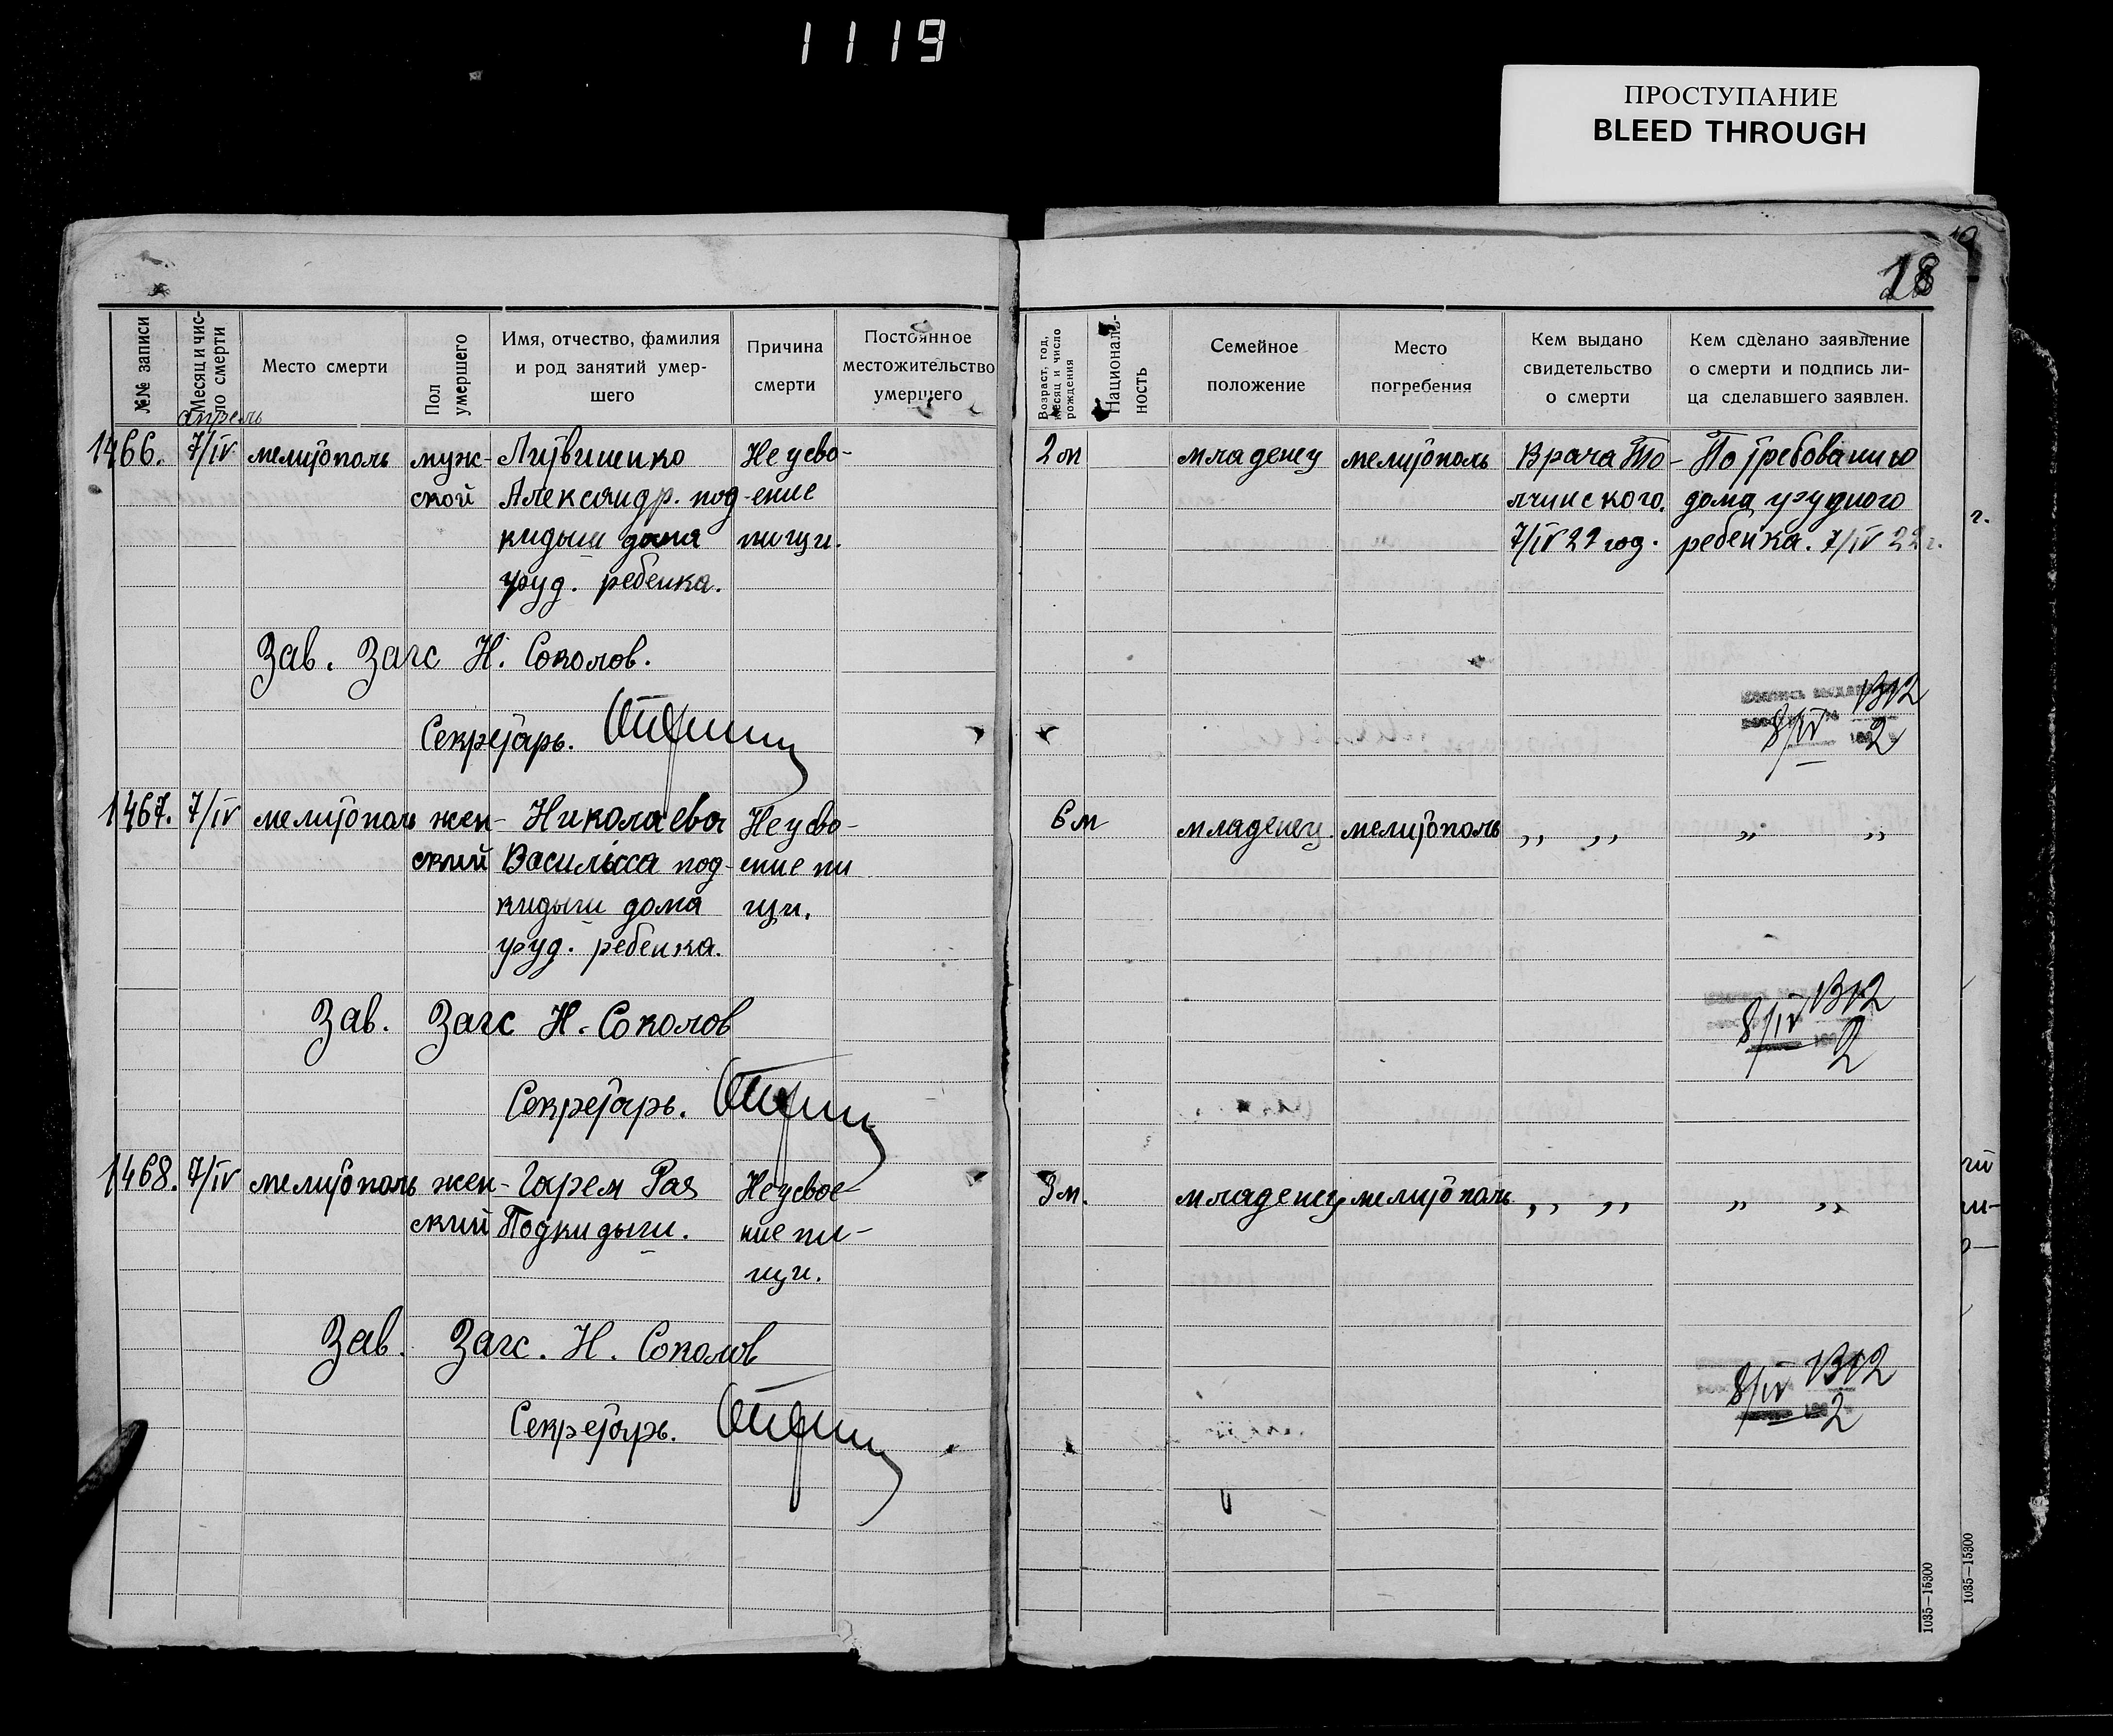 1119
ПРОСТУПАНИЕ
BLEED THROUGH
18
№№ записи
Месяц и чис-
ло смерти
Место смерти
Пол
умершего
Имя, отчество, фамилия
и род занятий умер-
шего
Причина
смерти
Постоянное
местожительство
умершего
Возраст, год,
месяц и число
рождения
Националь-
ность
Семейное
положение
Место
погребения
Кем выдано
свидетельство
о смерти
Кем сделано заявление
о смерти и подпись ли-
ца сделавшего заявлен.
апрель
1466. 7/IV мелитополь муж- Литвиненко Неусво- 2 м младенец мелитополь Врача То- По требованию
ской Александр. под- ение лчинского. дома грудного
кидыш дома пищи. 7/IV 22 год. ребенка. 7/IV 22 г.
груд. ребенка.
Зав. Загс Н. Соколов.
Секретарь.
8/IV 2
1467. 7/IV мелитополь жен- Николаева Неусво- 6 м младенец мелитополь ,, ,, ,, ,,
ский Василиса под- ение пи
кидыш дома щи.
груд. ребенка.
Зав. Загс Н. Соколов
Секретарь.
8/IV 2
1468. 7/IV мелитополь жен- Гарем Рая Неусвое- 3 м. младенец мелитополь ,, ,, ,, ,,
ский Подкидыш. ние пи-
щи.
Зав. Загс. Н. Соколов
Секретарь.
8/IV 2
1035—15300
1035—15300